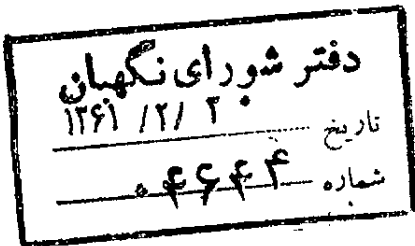 دفتر شورای نگهبان
تاریخ ۱۳۶۱ /۲/ ۲
شماره ۴۶۴۴